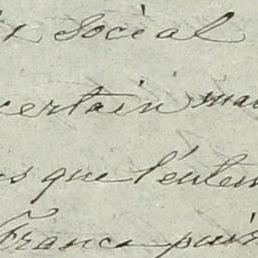 social
certain
que l'enten
France puis